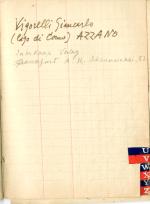 Vigorelli Giancarlo
(Lago di Como) AZZANO
Verlag
Frankfurt a. M.
U
V
W
X
Y
Z